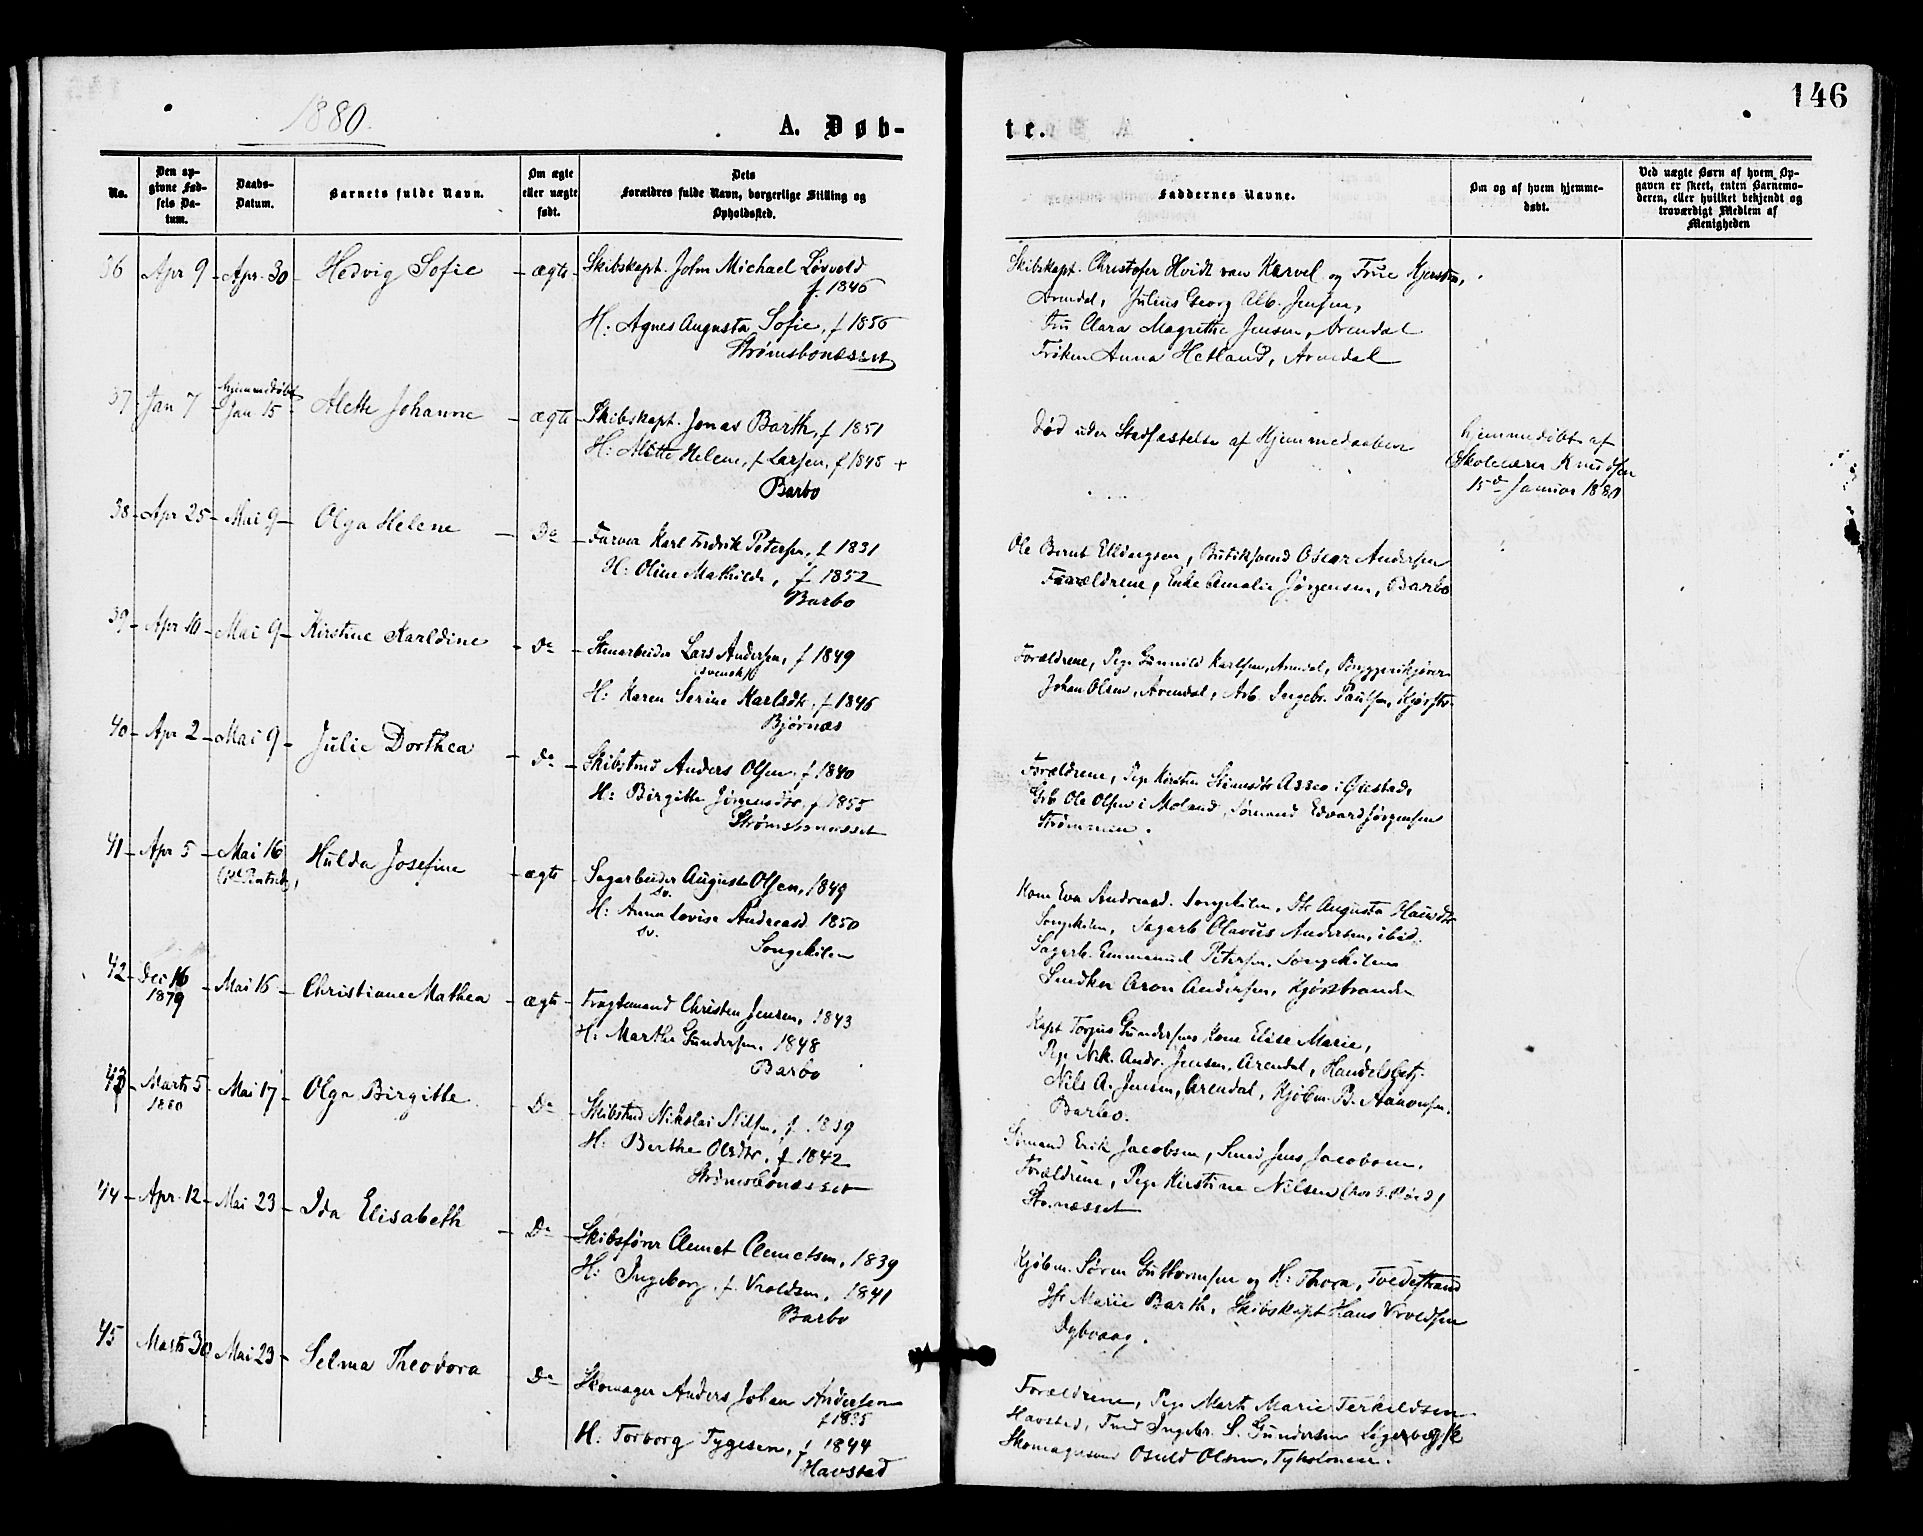 146
1880.
A. Døb-
te.
No.
Den op-
givne Fød-
sels Da-
tum.
Daabs-
Datum.
Barnets fulde Navn.
Om ægte
eller uægte
født.
Dets
Forældres fulde Navn, borgerlige Stilling og
Opholdssted.
Faddernes Navne.
Om og af hvem hjemme-
døbt.
Ved uægte Børn af hvem Op-
gaven er skeet, enten Barnemo-
deren, eller hvilket bekjendt og
troværdigt Medlem af
Menigheden
36 Apr 9 Apr. 30 Hedvig Sofie ægte Skibskapt. John Michael Løvold
f. 1846
H: Agnes Augusta Sofie, f 1856
Strømsbonesset
Skibskapt. Christofer Hvidt van Karvel og Frue Kjersten,
Arendal, Julius Georg Alb. Jensen,
Fru Clara Magrethe Jensen, Arendal
Frøken Anna Hetland, Arendal
37 Jan 7 hjemmedøbt
Jan 15 Alette Johanne ægte Skibskapt. Jonas Barth, f 1851
H: Alette Helene, f Larsen, f 1848 +
Barbo
Død uden Stadfæstelse af Hjemmedaaben
hjemmedøbt af
Skolelærer Knudsen
15de Januar 1880
38 Apr 25 Mai 9 Olga Helene Do Farver Karl Fredrik Petersen, f 1831
H: Oline Mathilde, f 1852
Barbo
Ole Bernt Ellingsen, Butiksvend Oscar Andersen
Forældrene, Enke Amalie Jørgensen, Barbo
39 Apr 10 Mai 9 Kirstine Karldine Do Stenarbeider Lars Andersen, f 1849
svensk
H: Karen Serine Karlsdtr. f 1846
Bjørnæs
Forældrene, Pige Gunnild Karlsen, Arendal, Bryggerikjører
Johan Olsen, Arendal, Arb. Ingebr. Paulsen,
40 Apr 2 Mai 9 Julie Dorthea Do Skibstmd Anders Olsen. f 1840
H: Birgitte Jørgensdtr. f 1855
Strømsbonesset
Forældrene, Pige Kirsten Asseo i Øiestad,
Grb Ole Olsen i Moland, Sømand Edvard Jørgensen
Strømmen.
41 Apr 5 Mai 16 Hulda Josefine ægte Sagarbeider August Olsen, 1849
sv.
H: Anna Lovise Andreasd. 1850
sv.
Songekilen
Kone Eva Andreasd. Songekilen, Augusta
Songekilen, Sagarb Olavus Andersen, ibid.
Sagarb. Emmanuel Petersen, Songekilen
Snedker Aron Andersen,
42 Dec 16
1879 Mai 16 Christiane Mathea ægte Fragtemand Christen Jensen, 1843
H: Marthe Gundersen, 1848
Barbo
Kapt Torjus Gundersens Kone Elise Marie,
Pige Nik. Andr. Jensen, Arendal, Handelsbetj.
Nils A. Jensen, Arendal, Kjøbm. B. Aanonsen.
Barbo.
43 Marts 5
1880 Mai 17 Olga Birgitte Do Skibstmd Nikolai Nilsen, f. 1839
H: Berthe Olsdtr, f 1842
Strømsbonesset
Sømand Erik Jacobsen, Smed Jens Jacobsen.
Forældrene, Pige Kirstine Nilsen
Str.næsset
44 Apr. 12 Mai 23 Ida Elisabeth Do Skibsfører Clemet Clemetsen, 1839
H: Ingeborg, f. Vroldsen, 1841
Barbo
Kjøbm. Søren Guttormsen og H: Thora, Tvedestrand
Marie Barth, Skibskapt Hans Vroldsen
Dybvaag.
45 Marts 30 Mai 23 Selma Theodora Do Skomager Anders Johan Andersen
f 1835
H: Torborg Tygesen, f 1844
Havsted
Forældrene, Pige Marte Marie Terkildsen
Havsted, Ingebr. S. Gundersen
Skomagersvend Osuld Olsen, Tyholmen.